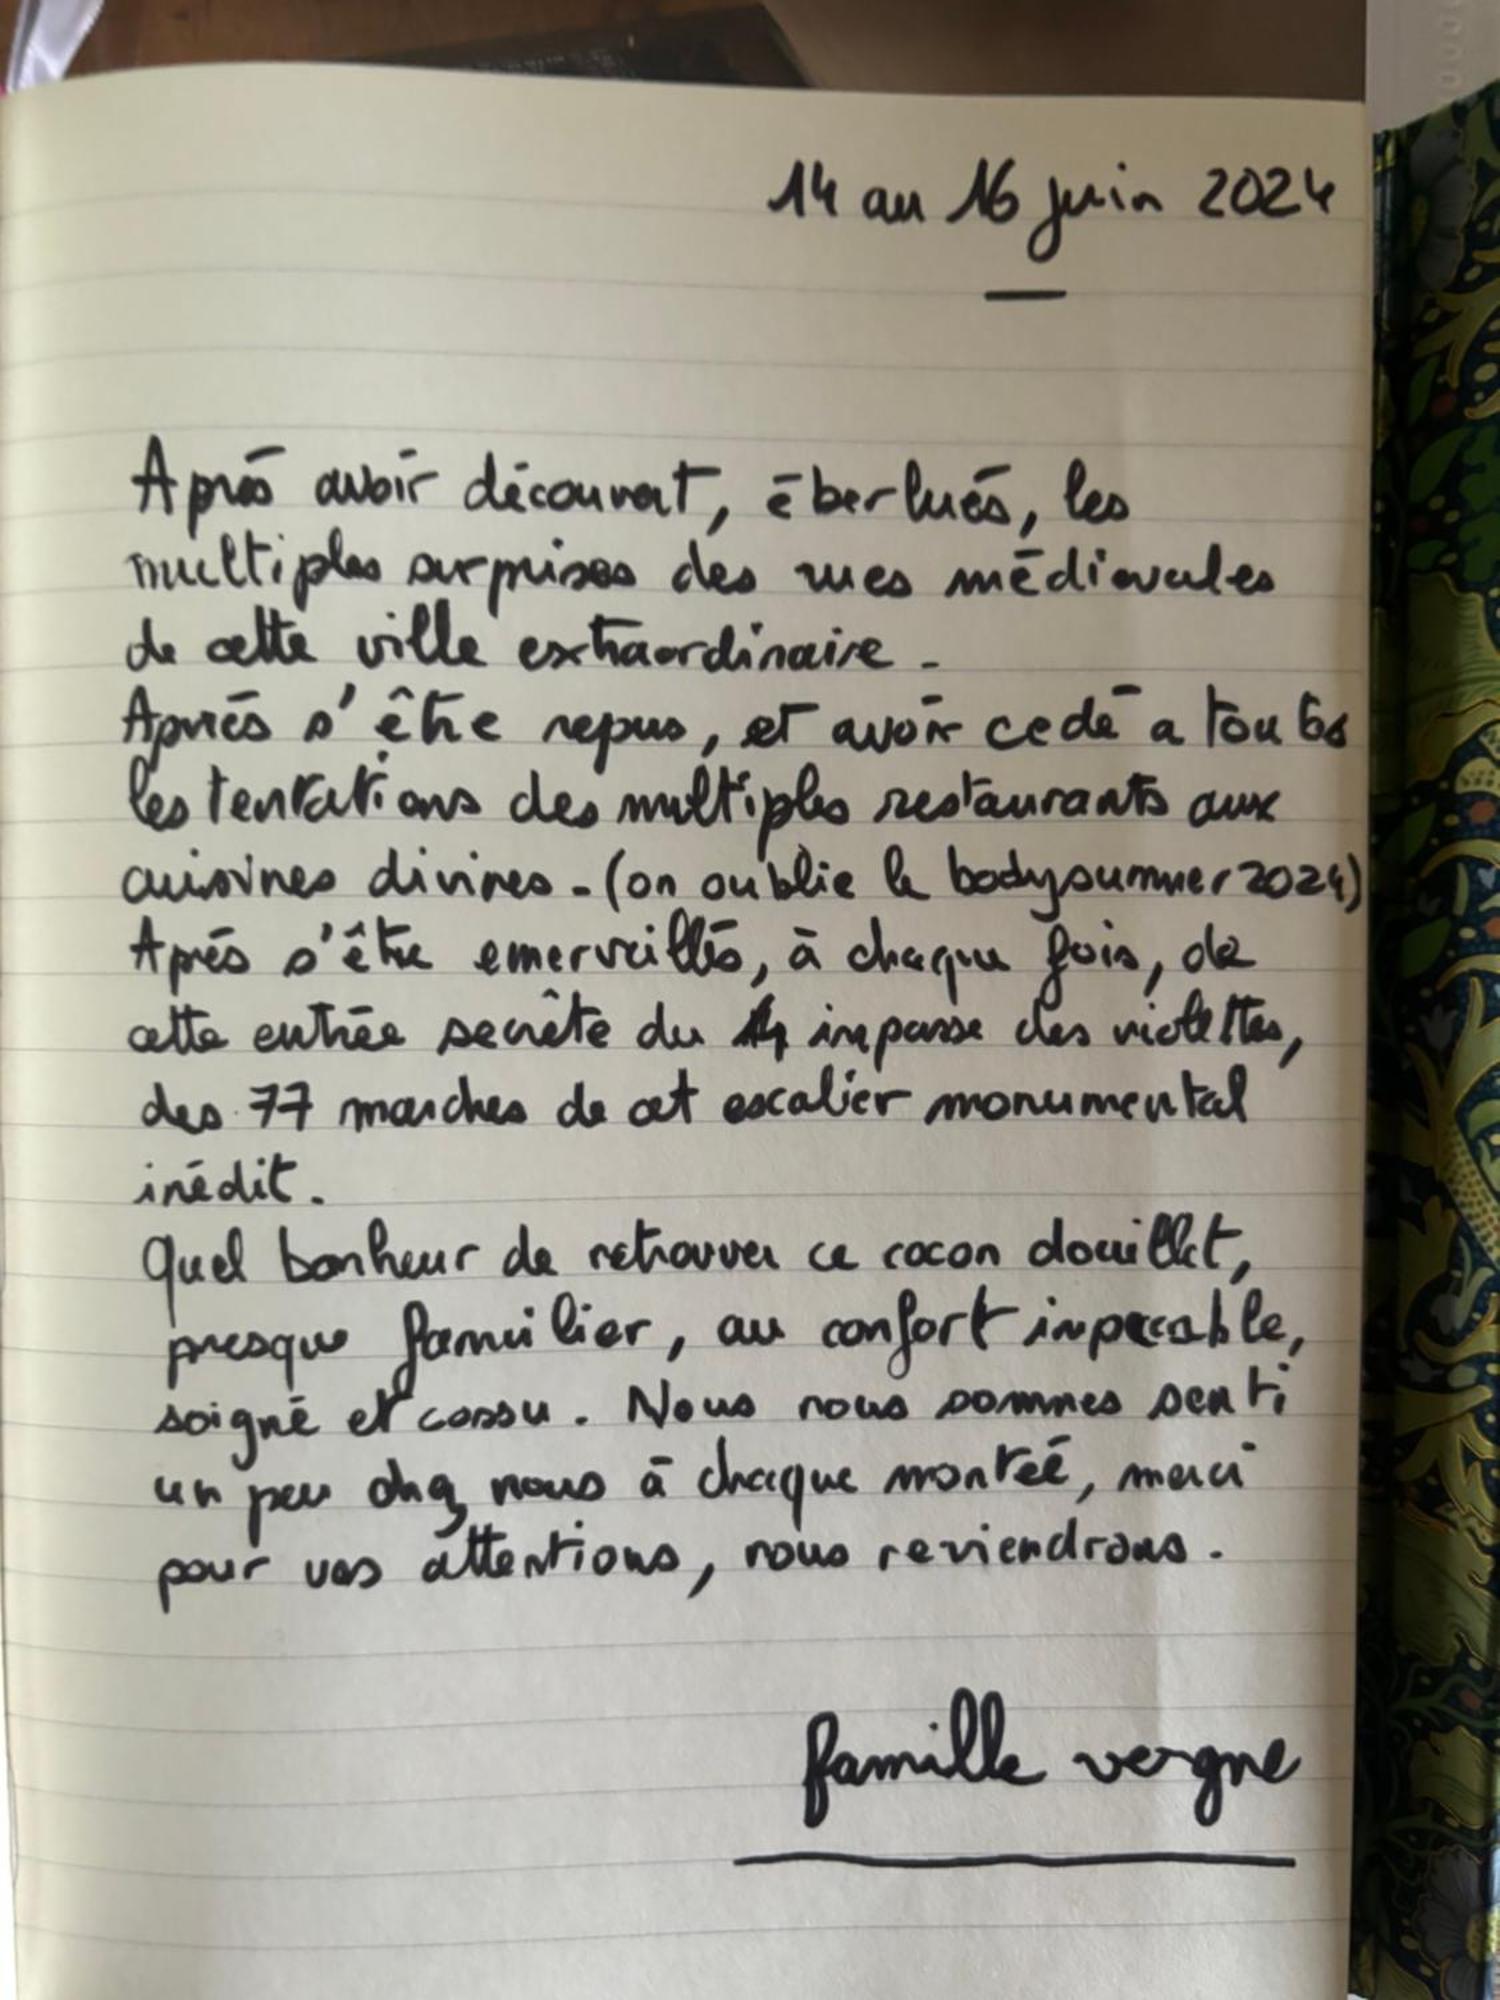 14 au 16 juin 2024
Après avoir découvert, éberlués, les
multiples surprises des rues médiévales
de cette ville extraordinaire.
Après s'être repus, et avoir cedé a toutes
les tentations des multiples restaurants aux
cuisines divines - (on oublie le bodysummer 2024)
Après s'être emerveillés, à chaque fois, de
cette entrée secrète du impasse des violettes,
des 77 marches de cet escalier monumental
inédit.
Quel bonheur de retrouver ce cocon douillet,
presque familier, au confort impeccable,
soigné et cossu. Nous nous sommes senti
un peu chez nous à chaque montée, merci
pour vos attentions, nous reviendrons.
famille vergne